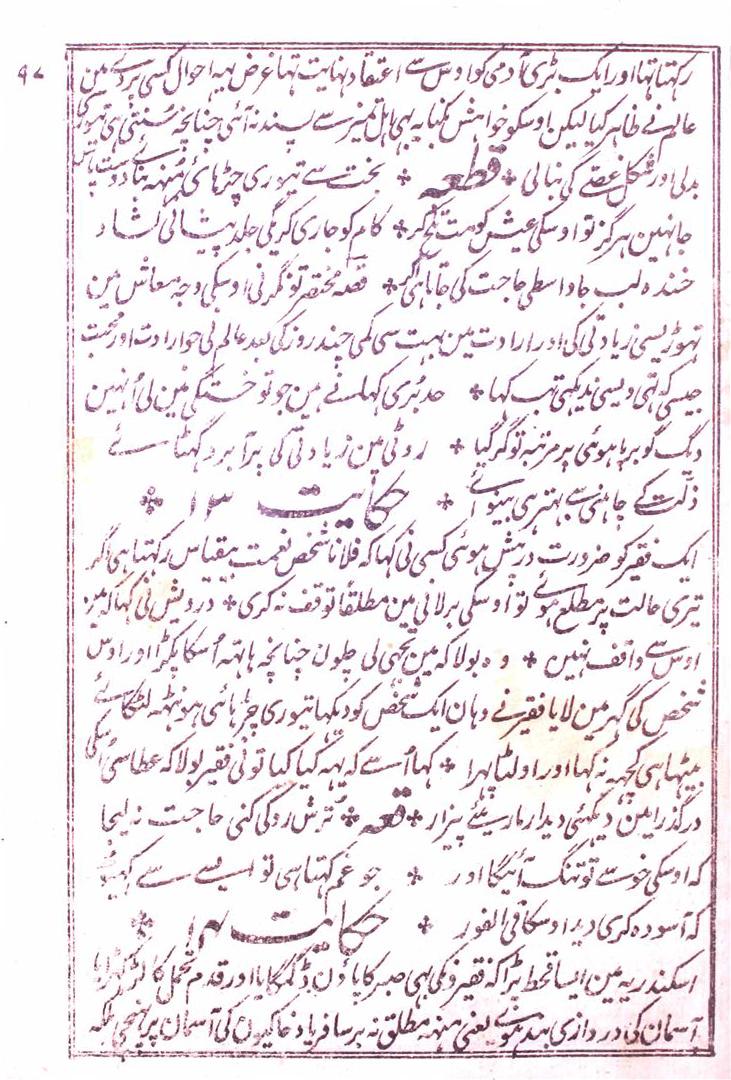 ۹۷
رکہتا تہا اور ایک بڑی آدمی کو اوس سے اعتقاد نہایت تہا غرض یہہ احوال کسی پردے مین
عالم نے ظاہر کیا لیکن اوسکو خواہش کنایہ بہی اہل تمیز سے پسند نہ آئی چنانچہ سُنتی ہی تیوری
بدلی اور شکل غصّے کی بنالی * قطعہ * بخت سے تیوری چڑہائی مُنہہ بنا دوست پاس
جا نہین ہرگز تو اوسکی عیش کو مت تلخ کر * کام کو جاری کریگی جلد پیشانی کشاد
خندہ لب جا واسطی حاجت کی جاتا ہی اگر * قصہ مختصر تونگر نی اوسکی وجہ معاش مین
تہوڑیسی زیادتی کی اور ارادت مین بہت سی کمی چند روز کی بعد عالم نی جو ارادت اور محبت
جیسی کہ تہی ویسی ندیکہی تب کہا * حد بُری کہانے مین جو تو خستگی مین لی اُنہین
دیگ گو برپا ہوئی پر مرتبہ تو گر گیا * روٹی مین زیادتی کی پر آبرو گہٹائے
ذلّت کے چاہنی سے بہتر ہی بینوائے * حکایت ۱۳ *
ایک فقیر کو ضرورت درپیش ہوئی کسی نی کہا کہ فلانا شخص نعمت بیقیاس رکہتا ہی اگر
تیری حالت پر مطلع ہوئے تو اوسکی برلانی مین مطلقاً توقف نہ کری * درویش نی کہا کہ مین
اوس سے واقف نہین * وہ بولا کہ مین تجہی لی چلون چنانچہ ہاتہہ اُسکا پکڑا اور اوس
شخص کی گہر مین لایا فقیر نے وہان ایک شخص کو دیکہا تیوری چڑہائی ہونٹہہ لٹکائے
بیٹہا ہی کچہہ نہ کہا اور اولٹا پہرا * کہا اُسے کہ یہہ کیا کیا تو نی فقیر بولا کہ عطا سی اُسکی
درگذرا مین دیکہتی دیدار مار یئے پیزار * قطعہ * تُرش رو کی کنی حاجت نہ لیجا
کہ اوسکی خو سے تو تنگ آئیگا اور * جو غم کہتا ہی تو ایسے سے کہیو
کہ آسودہ کری دید اوسکا فی الفور * حکایت ۱۴ *
اسکندریہ مین ایسا قحط پڑا کہ فقیرونکی ہی صبر کا پاؤن ڈگمگایا اور قدم تحمل کا لڑکہڑایا
آسمان کی دروازی بند ہوئے یعنی مینہہ مطلق نہ برسا فریاد خاکیون کی آسمان پر پہنچی بلکہ